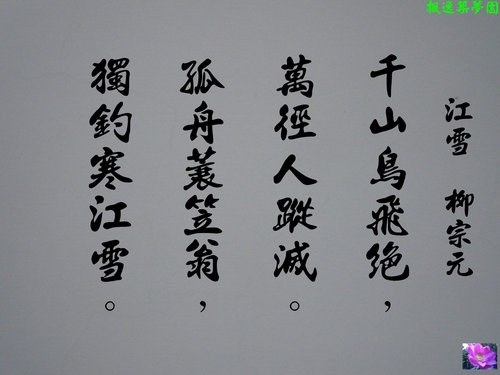 江雪 柳宗元
千山鳥飛絕，
萬徑人蹤滅。
孤舟蓑笠翁，
獨釣寒江雪。
飄逸築夢園